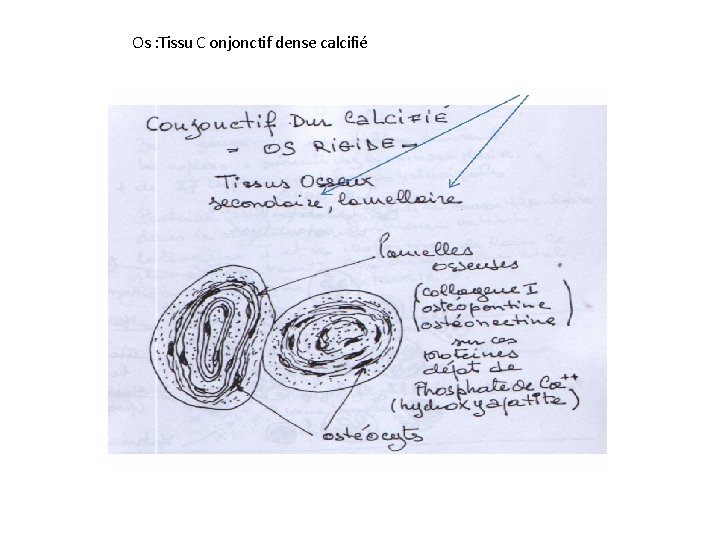 Os : Tissu C onjonctif dense calcifié
Conjonctif Dur CALCIFIÉ
= OS RIGIDE =
Tissus Osseux
secondaire, lamellaire
lamelles
osseuses
(collagene I
ostéopontine
ostéonectine)
sur ces
proteines
dépot de
Phosphate de Ca++
(hydroxyapatite)
ostéocyts